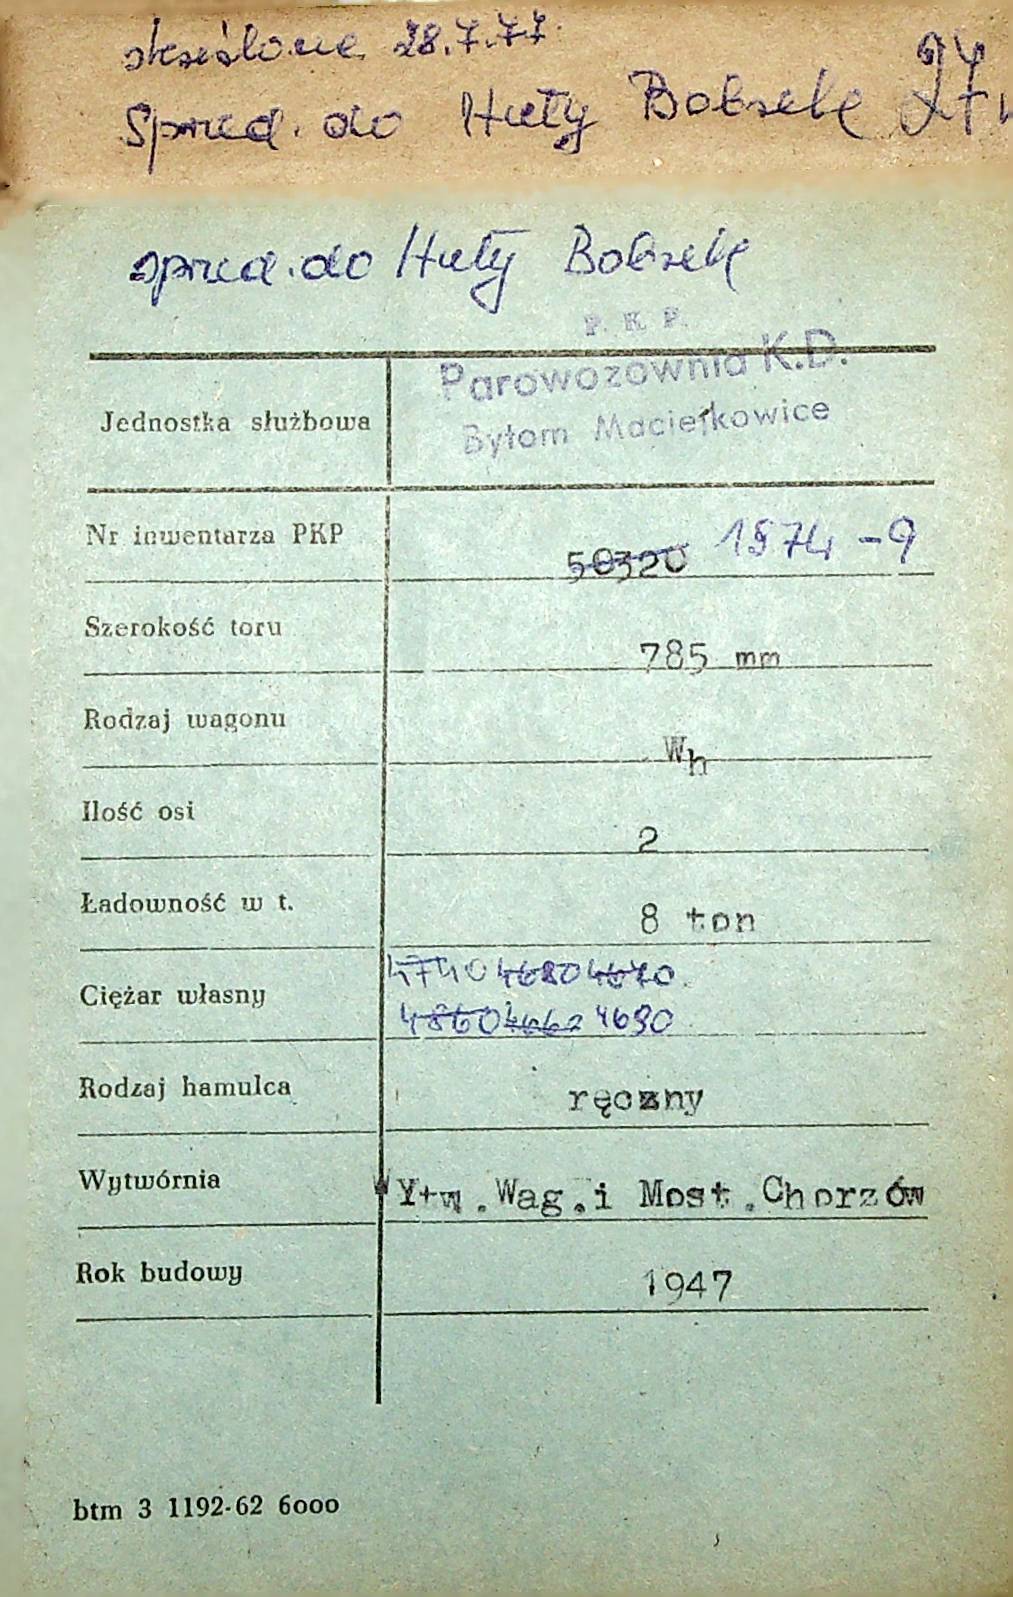 skreślone 28.7.77.
Sprzed. do Huty Bobrek 27
sprzed. do Huty Bobrek
P. K. P.
Parowozownia K.D.
Bytom Maciejkowice
Jednostka służbowa
Nr inwentarza PKP 50320 1974 - 9
Szerokość toru 785 mm
Rodzaj wagonu Wh
Ilość osi 2
Ładowność w t. 8 ton
Ciężar własny 4740 4680 4670
4860 4662 4690
Rodzaj hamulca ręczny
Wytwórnia Wytw.Wag.i Most.Chorzów
Rok budowy 1947
btm 3 1192-62 6000